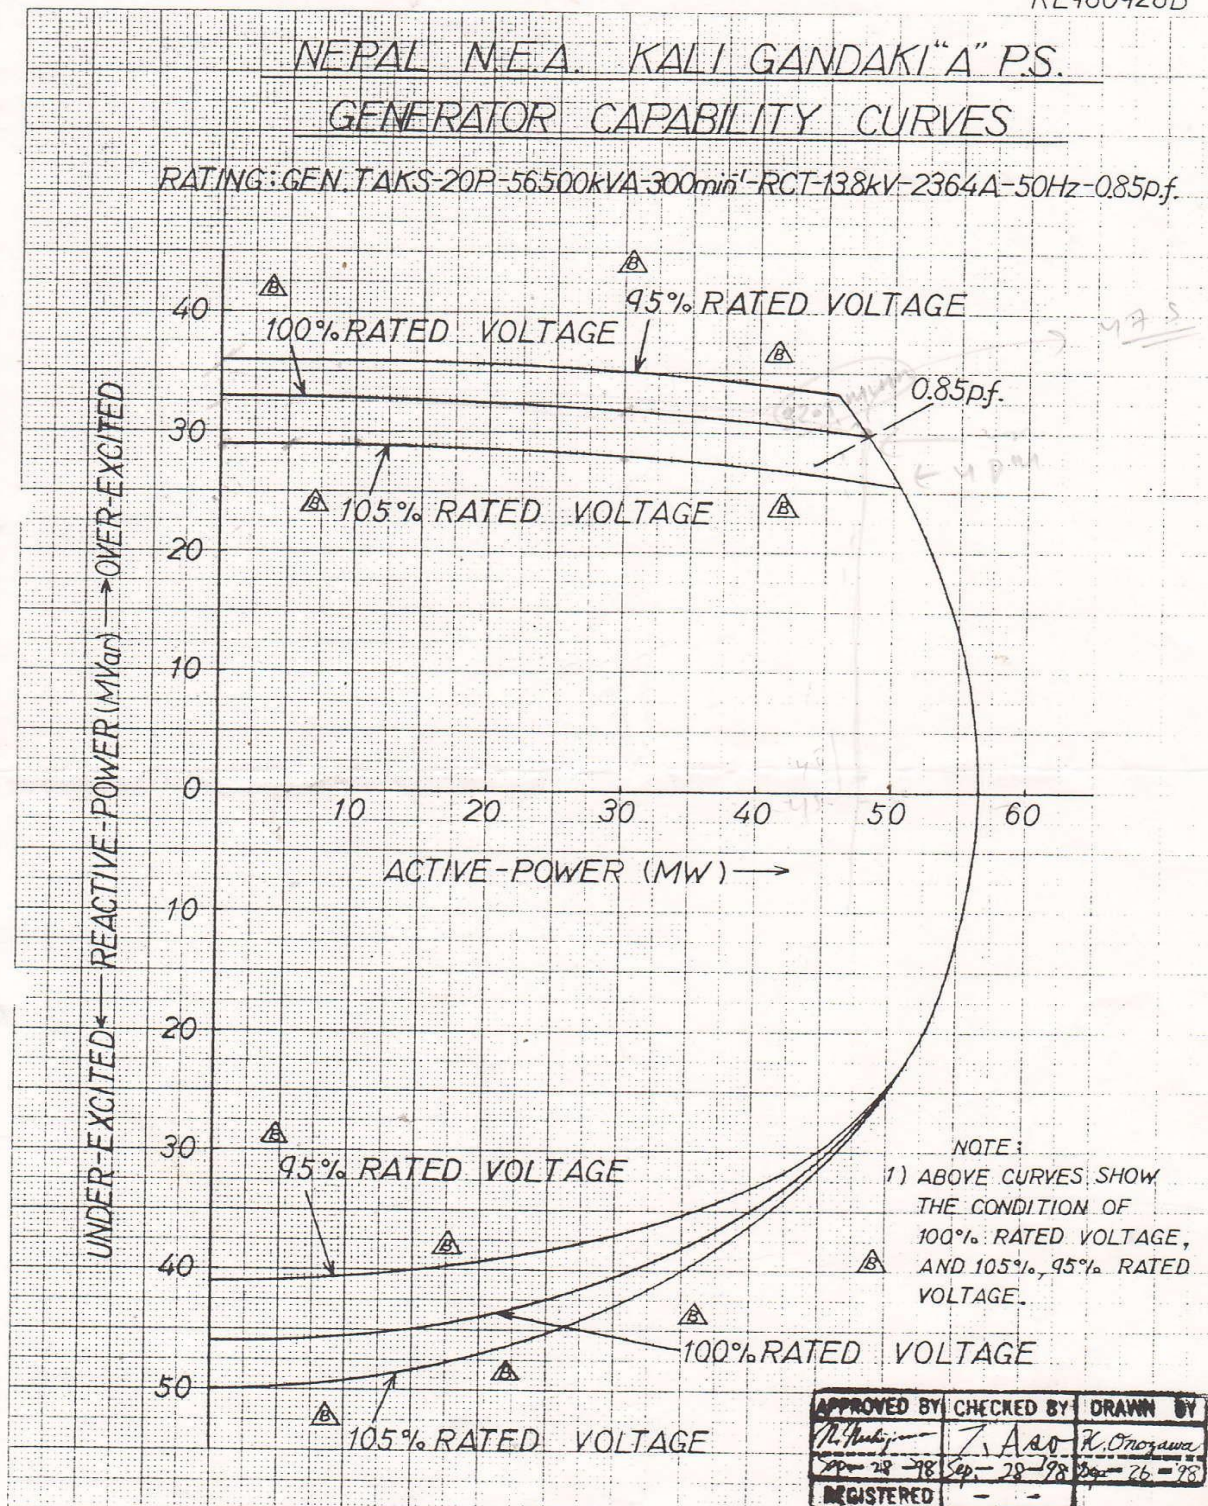 NEPAL N.E.A. KALI GANDAKI "A" P.S.
GENERATOR CAPABILITY CURVES
RATING: GEN. TAKS-20P-56500kVA-300min⁻¹-RCT-13.8kV-2364A-50Hz-0.85p.f.
B
B
95% RATED VOLTAGE
40
100% RATED VOLTAGE
B
0.85p.f.
30
B
105% RATED VOLTAGE
B
20
10
0
10 20 30 40 50 60
ACTIVE-POWER (MW)
10
20
30
40
50
UNDER-EXCITED REACTIVE-POWER (MVar) OVER-EXCITED
B
95% RATED VOLTAGE
B
B
100% RATED VOLTAGE
B
B
105% RATED VOLTAGE
NOTE:
1) ABOVE CURVES SHOW
THE CONDITION OF
100% RATED VOLTAGE,
B AND 105%, 95% RATED
VOLTAGE.
APPROVED BY CHECKED BY DRAWN BY
T. Aso K. Onozawa
Sep - 28 - 98 Sep. - 28 - 98 Sep - 26 - '98
REGISTERED - -